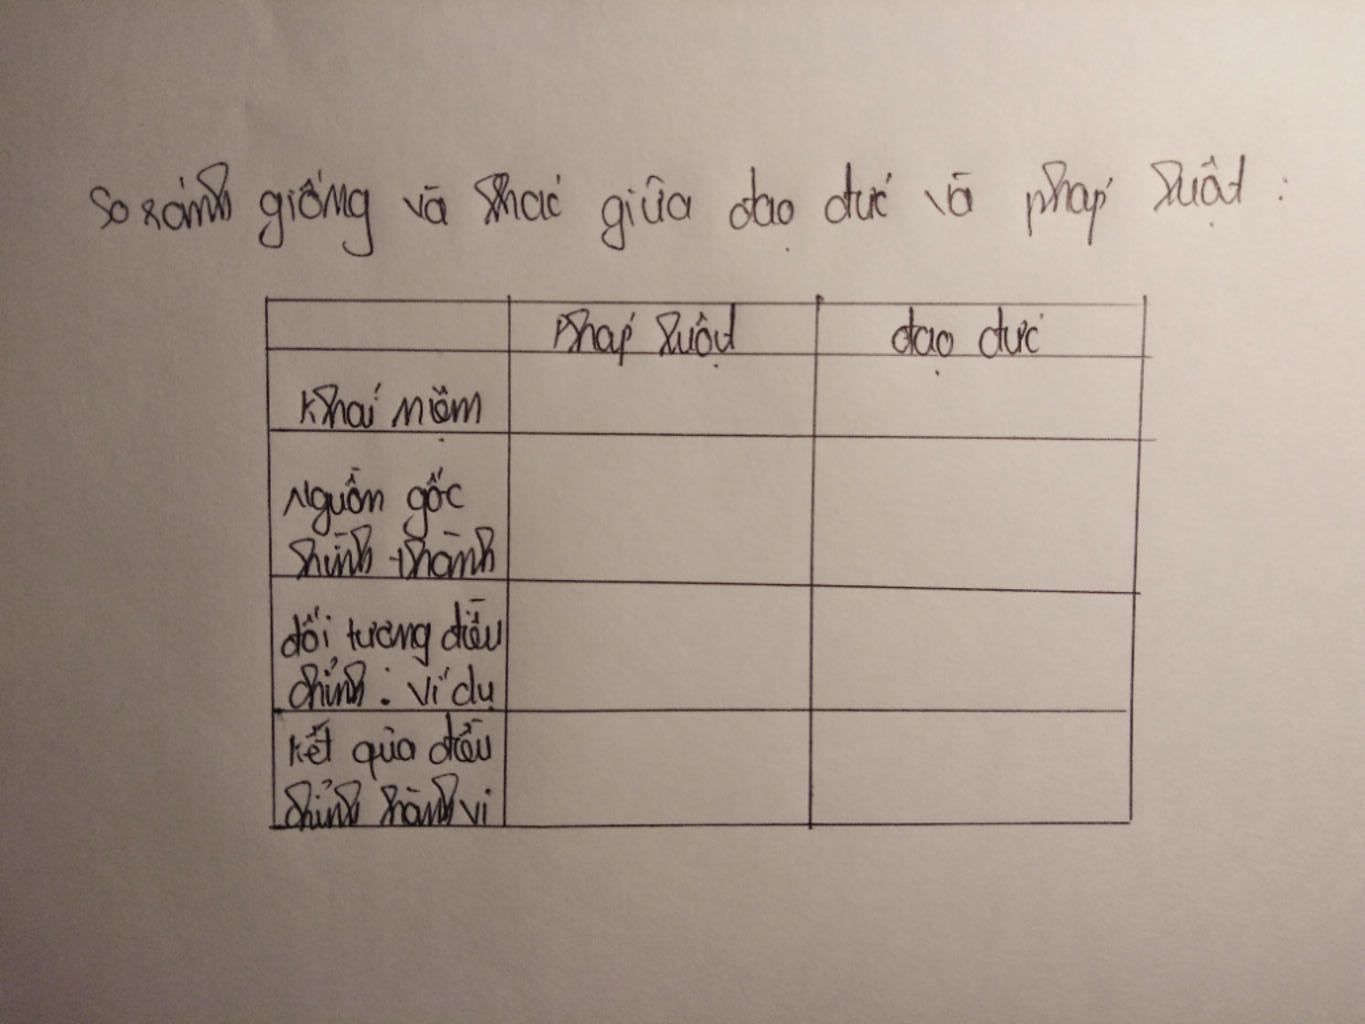 So sánh giống và khác giữa đạo đức và pháp luật :
pháp luật đạo đức
Khái niệm
Nguồn gốc
hình thành
đối tương điều
chỉnh : ví dụ
kết quả điều
chỉnh hành vi